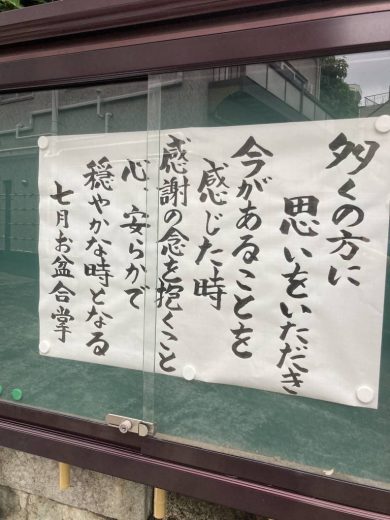 多くの方に
思いをいただき
今があることを
感じた時
感謝の念を抱くこと
心、安らかで
穏やかな時となる
七月お盆合掌